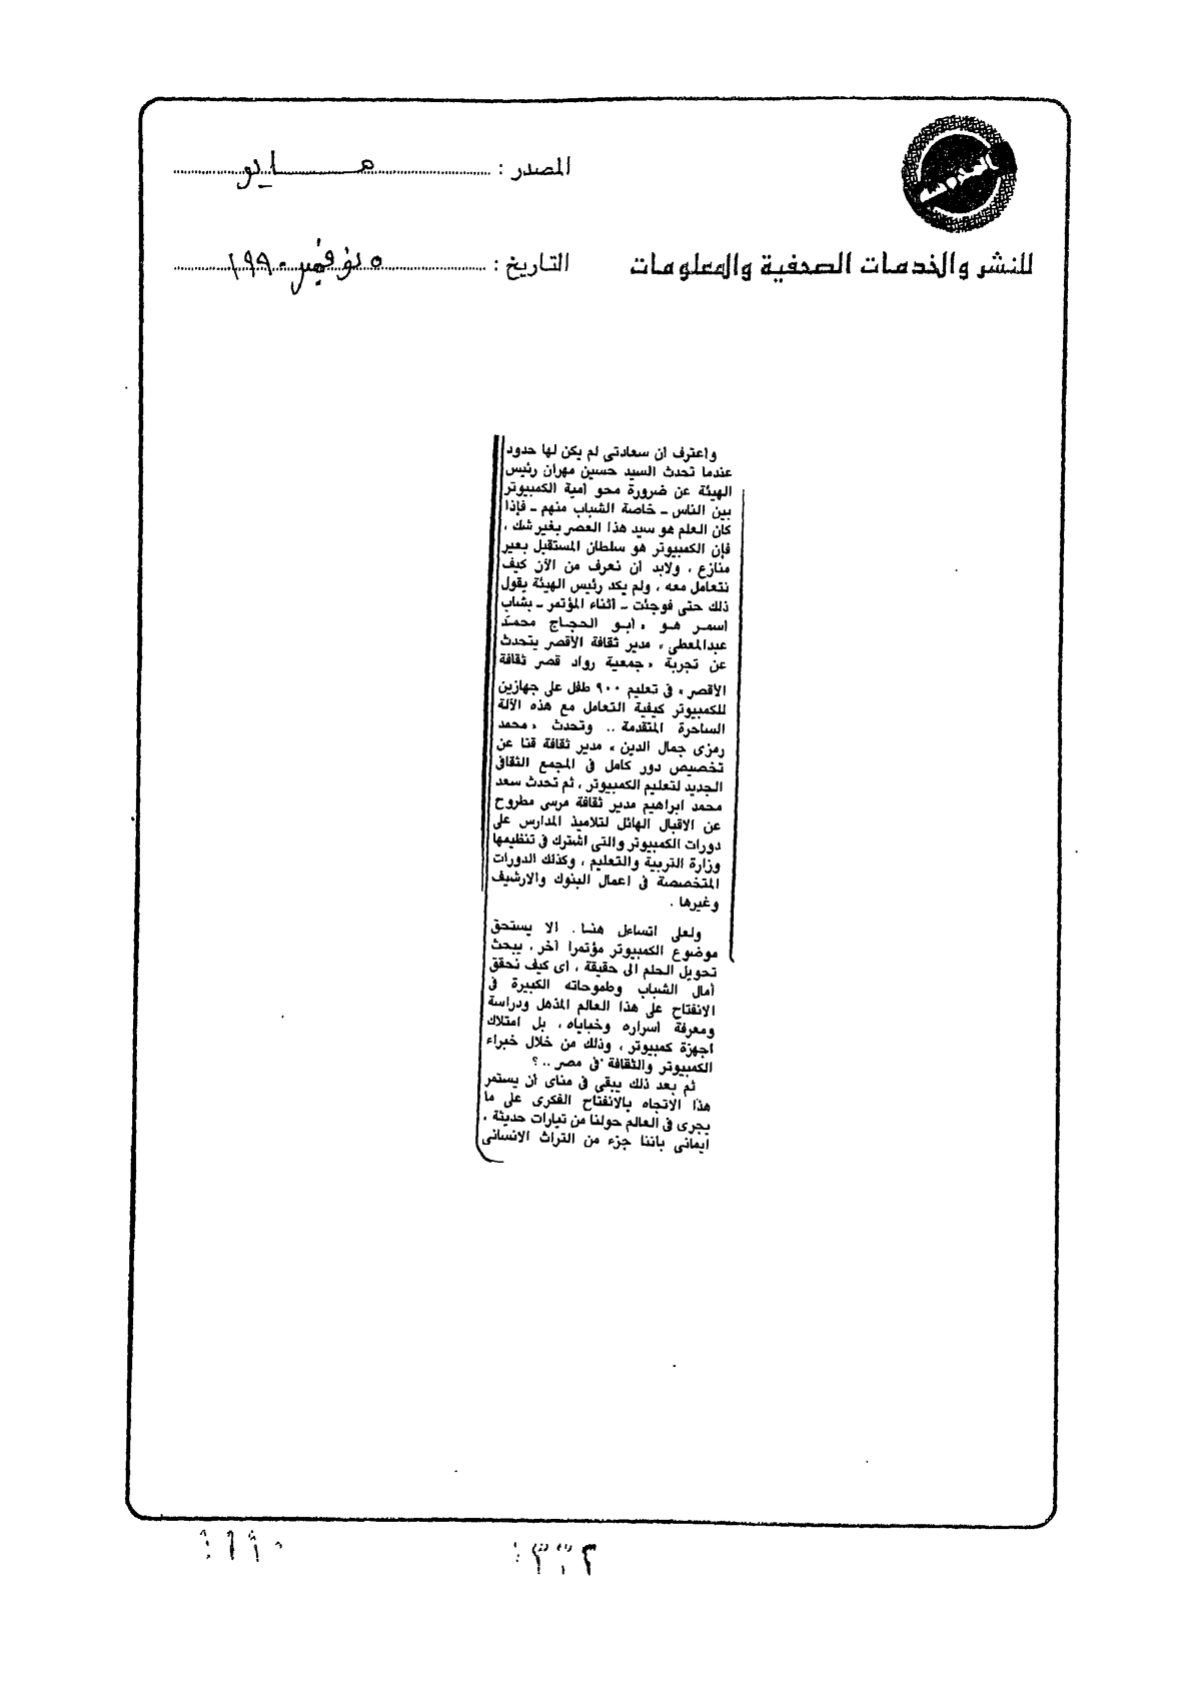 المصدر : مايو
للنشر والخدمات الصحفية والمعلومات
التاريخ : ٥ نوفمبر ١٩٩٠
واعترف ان سعادتى لم يكن لها حدود
عندما تحدث السيد حسين مهران رئيس
الهيئة عن ضرورة محو أمية الكمبيوتر
بين الناس ـ خاصة الشباب منهم ـ فإذا
كان العلم هو سيد هذا العصر بغير شك ،
فإن الكمبيوتر هو سلطان المستقبل بغير
منازع ، ولابد أن نعرف من الآن كيف
نتعامل معه ، ولم يكد رئيس الهيئة يقول
ذلك حتى فوجئت ـ أثناء المؤتمر ـ بشاب
اسمر هو ، أبو الحجاج محمد
عبدالمعطى ، مدير ثقافة الأقصر يتحدث
عن تجربة ، جمعية رواد قصر ثقافة
الأقصر ، فى تعليم ٩٠٠ طفل على جهازين
للكمبيوتر كيفية التعامل مع هذه الآلة
الساحرة المتقدمة .. وتحدث ، محمد
رمزى جمال الدين ، مدير ثقافة قنا عن
تخصيص دور كامل فى المجمع الثقافى
الجديد لتعليم الكمبيوتر ، ثم تحدث سعد
محمد ابراهيم مدير ثقافة مرسى مطروح
عن الاقبال الهائل لتلاميذ المدارس على
دورات الكمبيوتر والتى اشترك فى تنظيمها
وزارة التربية والتعليم ، وكذلك الدورات
المتخصصة فى اعمال البنوك والارشيف
وغيرها .
ولعلى اتساءل هنا . الا يستحق
موضوع الكمبيوتر مؤتمرا آخر ، يبحث
تحويل الحلم الى حقيقة ، اى كيف نحقق
أمال الشباب وطموحاته الكبيرة فى
الانفتاح على هذا العالم المذهل ودراسة
ومعرفة اسراره وخباياه ، بل امتلاك
اجهزة كمبيوتر ، وذلك من خلال خبراء
الكمبيوتر والثقافة فى مصر .. ؟
ثم بعد ذلك يبقى فى مناى أن يستمر
هذا الاتجاه بالانفتاح الفكرى على ما
يجرى فى العالم حولنا من تيارات حديثة ،
ايمانى باننا جزء من التراث الانسانى